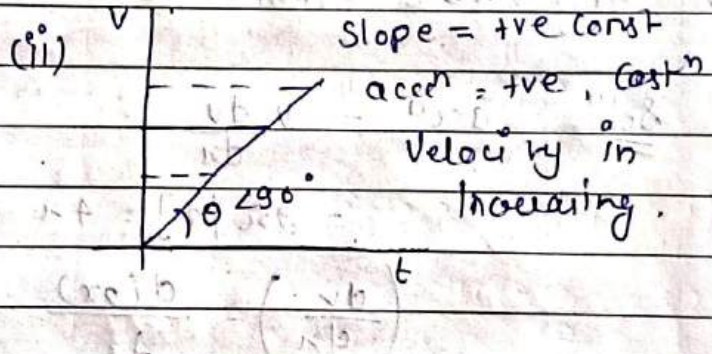 V
Slope = +ve Const
(ii)
accⁿ = +ve, Constⁿ
Velocity in
Increasing.
θ <90°
t